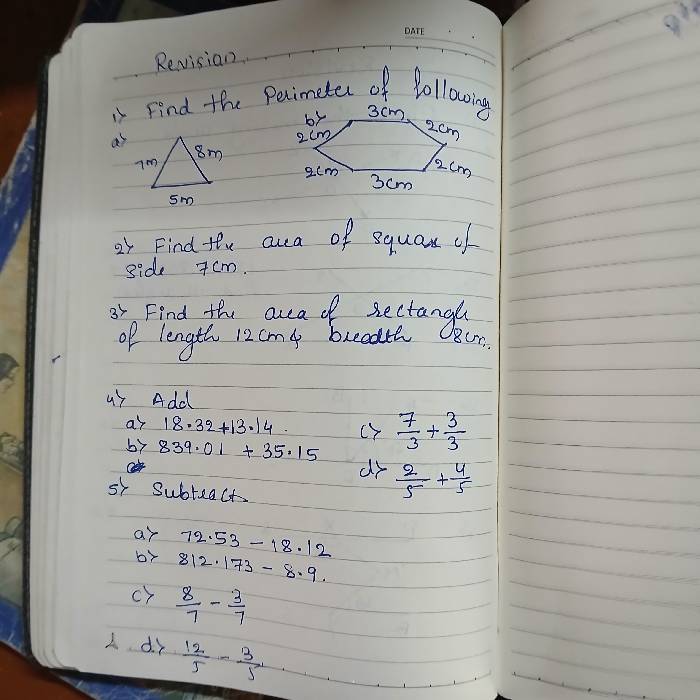 DATE
Revision
1) Find the Perimeter of following
a)
7m
8m
5m
b)
3cm
2cm
2cm
2cm
2cm
3cm
2) Find the area of square of
side 7cm.
3) Find the area of rectangle
of length 12cm & breadth 8cm.
4) Add
a) 18.32+13.14.
b) 839.01 + 35.15
c) 7/3 + 3/3
d) 2/5 + 4/5
5) Subtract
a) 72.53 - 18.12
b) 812.173 - 8.9.
c) 8/7 - 3/7
d) 12/5 - 3/5